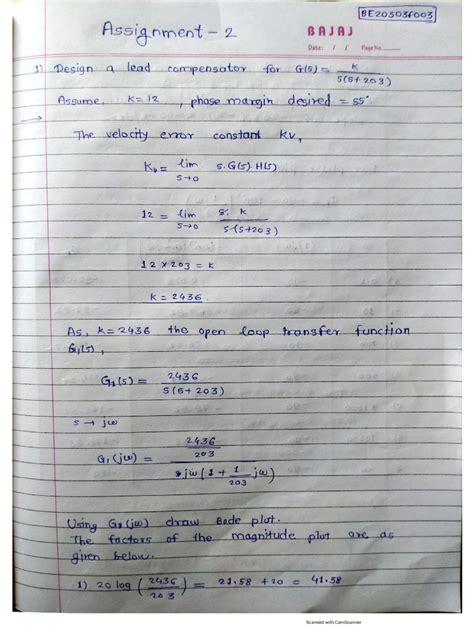 BE20503F003
Assignment - 2
BAJAJ
Date: / / Page No.
1) Design a lead compensator for G(s) = k / s(s+203)
Assume, k=12 , phase margin desired = 85°.
→ The velocity error constant kv,
Kv = lim s→0 s.G(s).H(s)
12 = lim s→0 s. k / s(s+203)
12 x 203 = k
k = 2436.
As, k=2436 the open loop transfer function
G1(s),
G1(s) = 2436 / s(s+203)
s → jω
G1(jω) = 2436/203 / jω(1 + 1/203 jω)
Using G1(jω) draw Bode plot.
The factors of the magnitude plot are as
given below.
1) 20 log (2436/203) = 21.58 + 20 = 41.58
Scanned with CamScanner